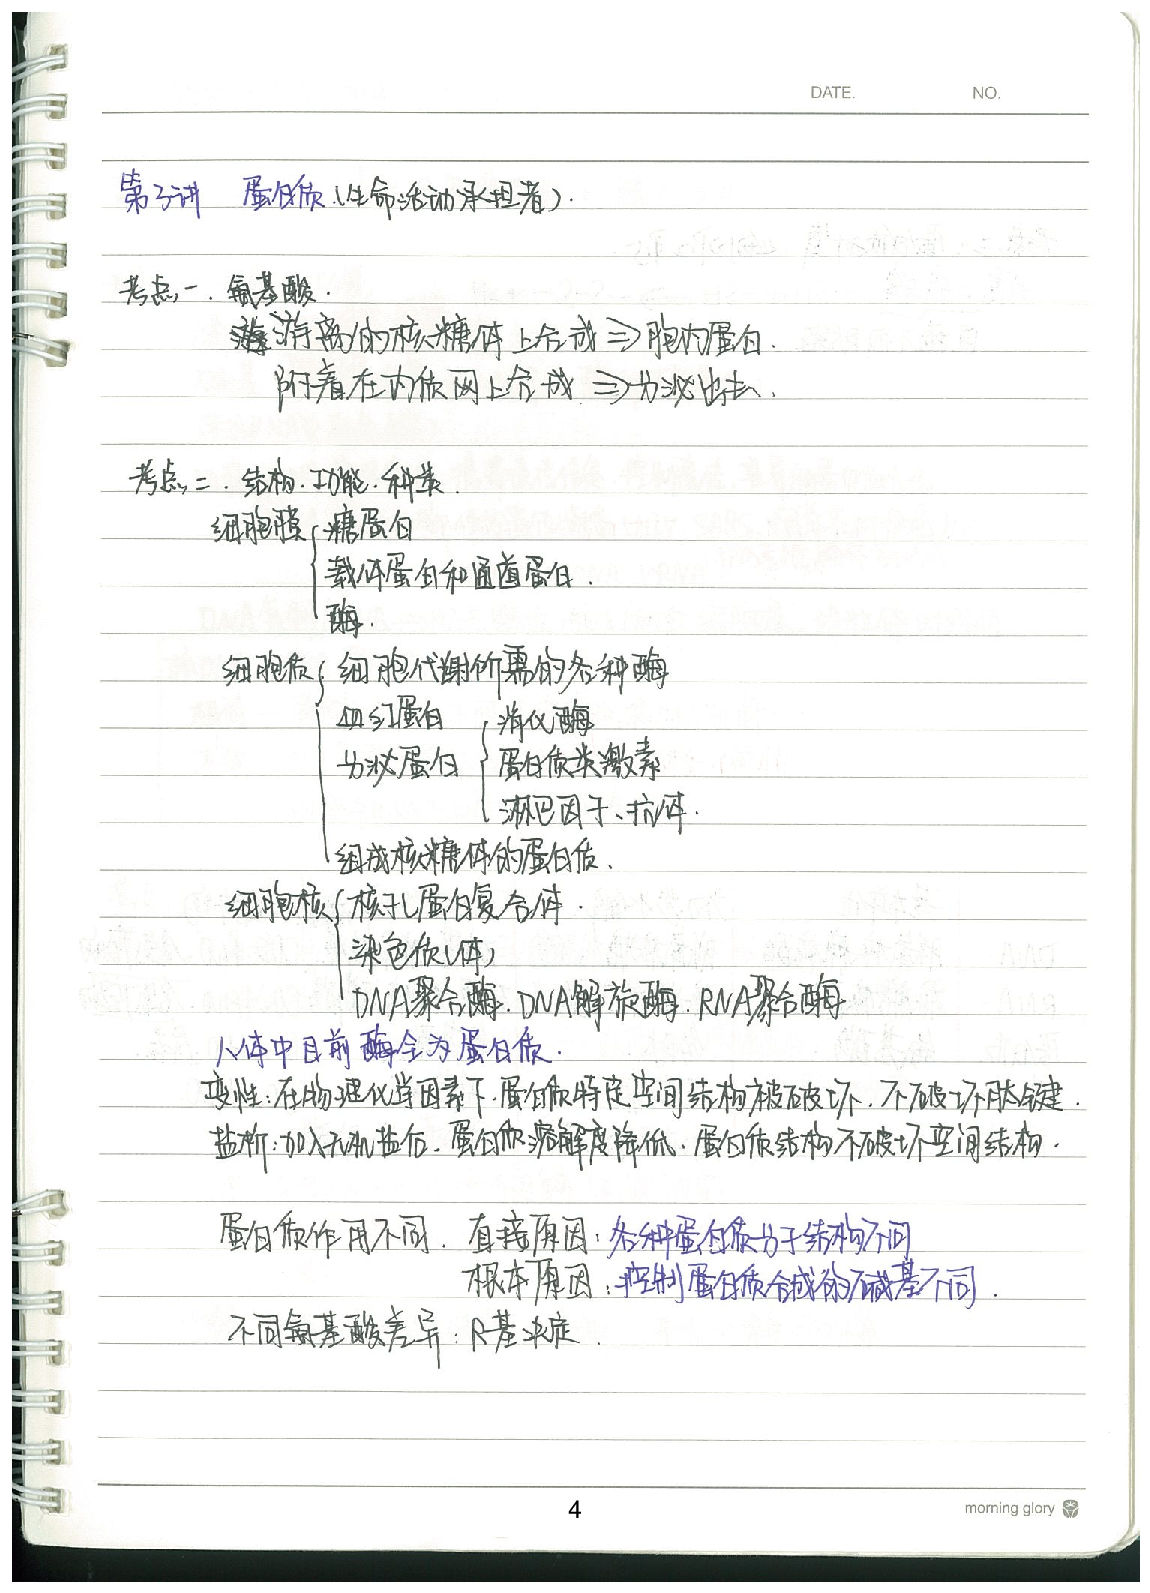 DATE. NO.
第3讲 蛋白质(生命活动承担者).
考点一. 氨基酸.
游离的核糖体上合成⇒胞内蛋白.
附着在内质网上合成⇒分泌出去.
考点二. 结构.功能.种类.
细胞膜{糖蛋白
载体蛋白和通道蛋白.
酶.
细胞质{细胞代谢所需的各种酶
血红蛋白 {消化酶
分泌蛋白 蛋白质类激素
淋巴因子、抗体.
组成核糖体的蛋白质.
细胞核{核孔蛋白复合体.
染色质(体)
DNA聚合酶.DNA解旋酶.RNA聚合酶
人体中目前酶全为蛋白质.
变性:在物理化学因素下.蛋白质特定空间结构被破坏.不破坏肽键.
盐析:加入无机盐后.蛋白质溶解度降低.蛋白质结构不破坏空间结构.
蛋白质作用不同. 直接原因:各种蛋白质分子结构不同
根本原因:控制蛋白质合成的碱基不同.
不同氨基酸差异:R基决定.
4
morning glory